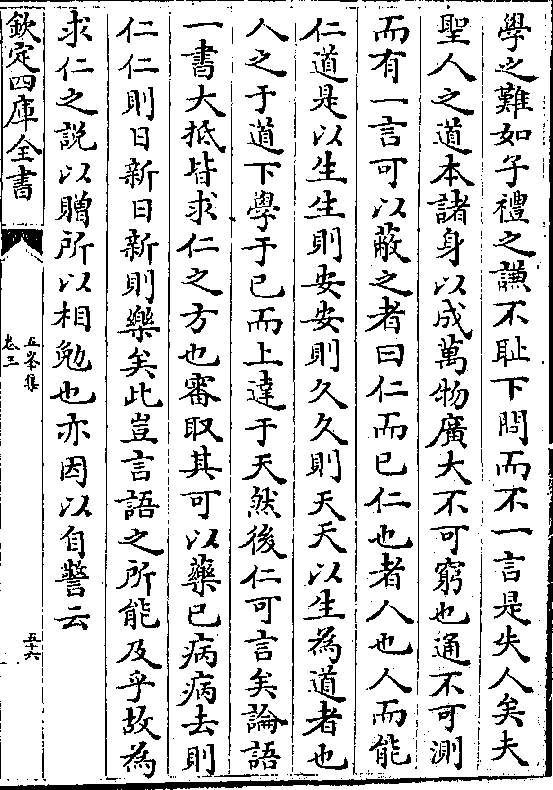 學之難如子禮之謙不耻下問而不一言是失人矣夫
聖人之道本諸身以成萬物廣大不可窮也通不可測
而有一言可以蔽之者曰仁而已仁也者人也人而能
仁道是以生生則安安則久久則天天以生為道者也
人之于道下學于已而上達于天然後仁可言矣論語
一書大抵皆求仁之方也審取其可以藥已病病去則
仁仁則日新日新則樂矣此豈言語之所能及乎故為
求仁之説以贈所以相勉也亦因以自警云
欽定四庫全書
五峯集
卷三
五十六